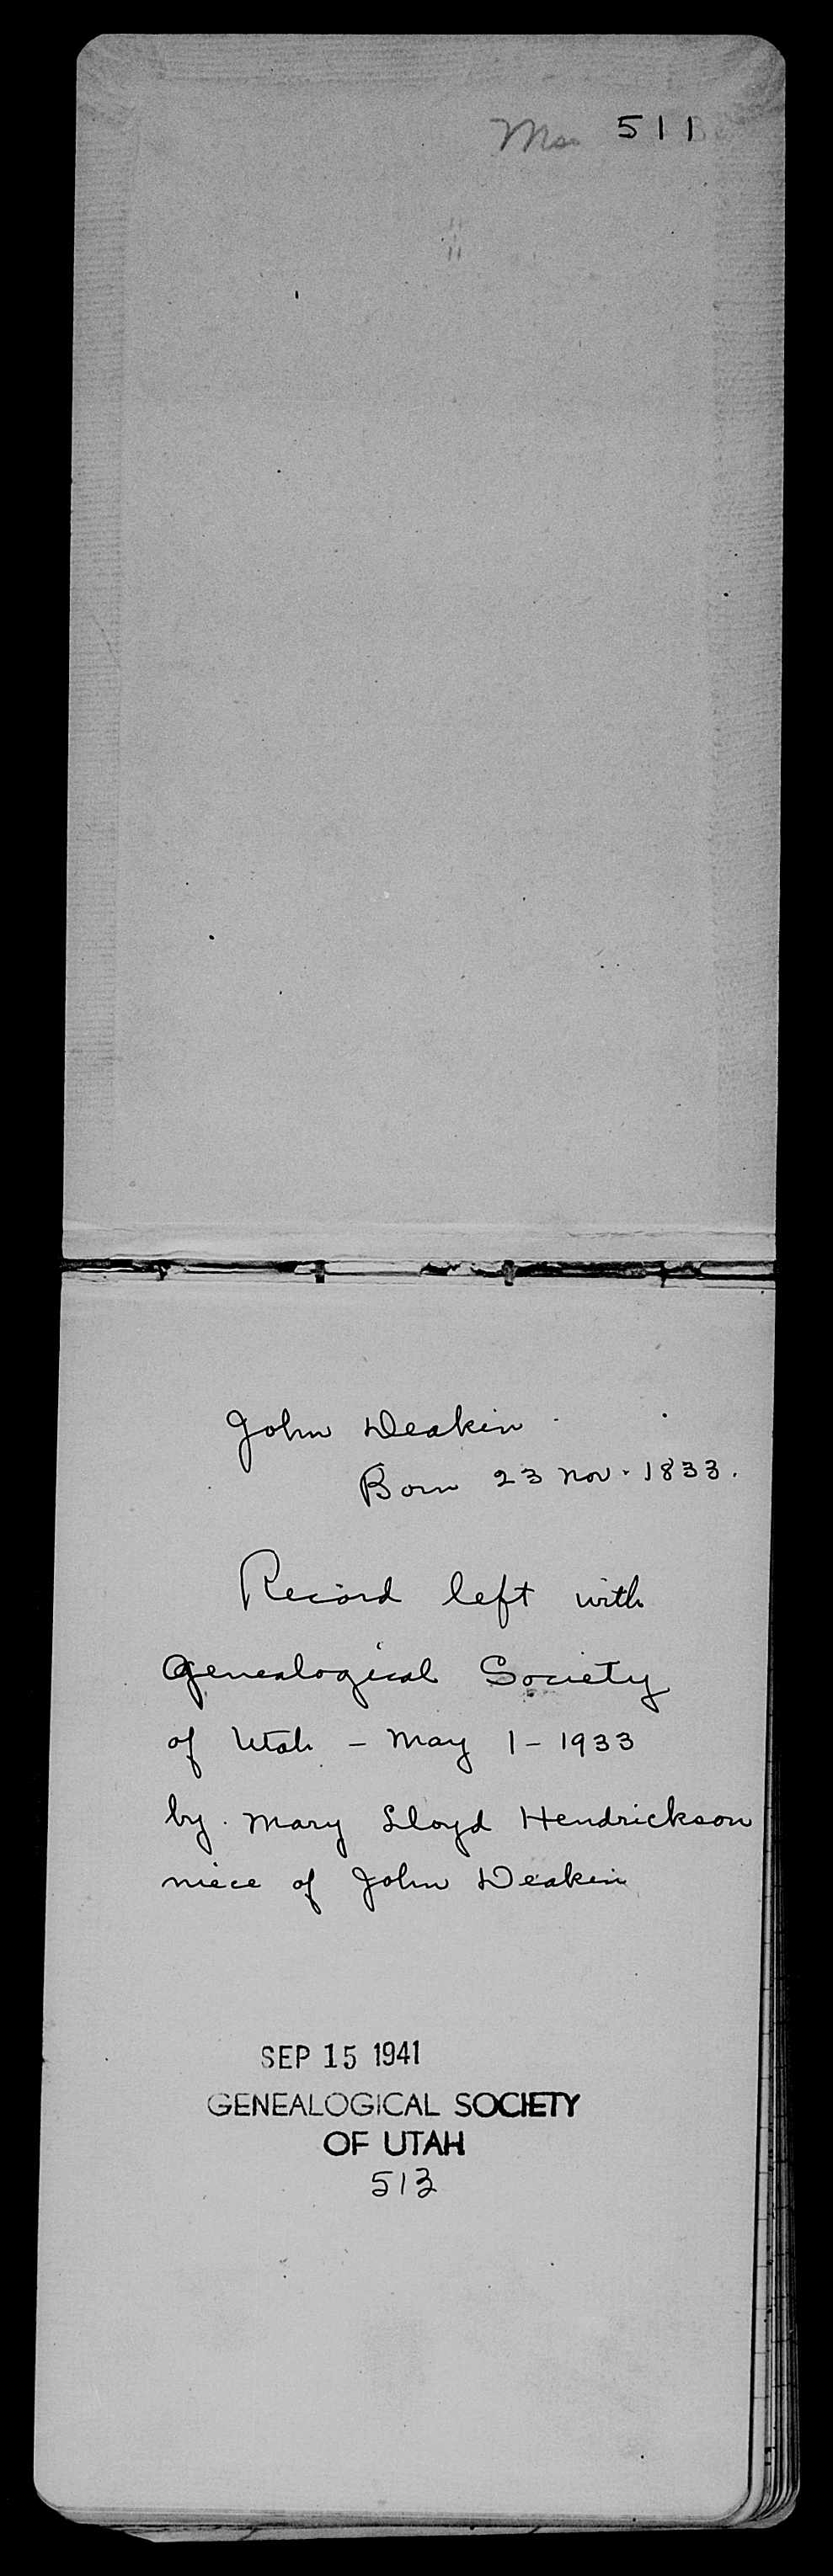 Ms. 511
John Deakin
Born 23 Nov. 1833.
Record left with
Genealogical Society
of Utah - May 1 - 1933
by Mary Lloyd Hendrickson
niece of John Deakin
SEP 15 1941
GENEALOGICAL SOCIETY
OF UTAH
513